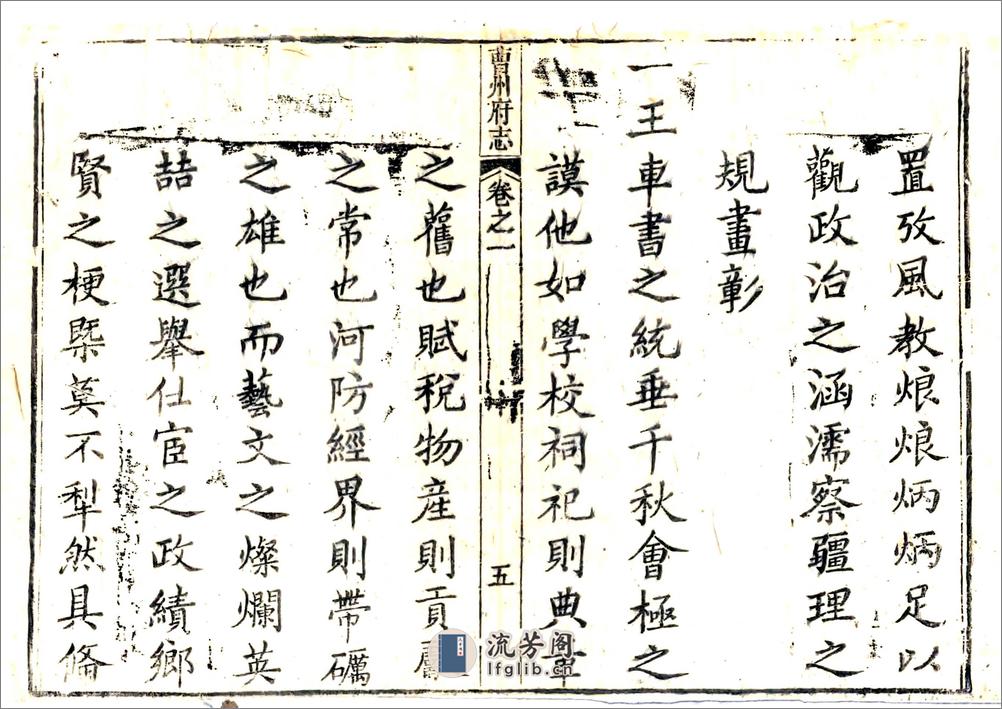 置攷風教烺烺炳炳足以
觀政治之涵濡察疆理之
規畫彰
一王車書之統垂千秋會極之
謨他如學校祠祀則典章
曹州府志 卷之一 五
之舊也賦稅物産則貢
之常也河防經界則帶礪
之雄也而藝文之燦爛英
喆之選舉仕宦之政績鄉
賢之梗槩莫不犁然具偹
流芳阁
lfglib.cn